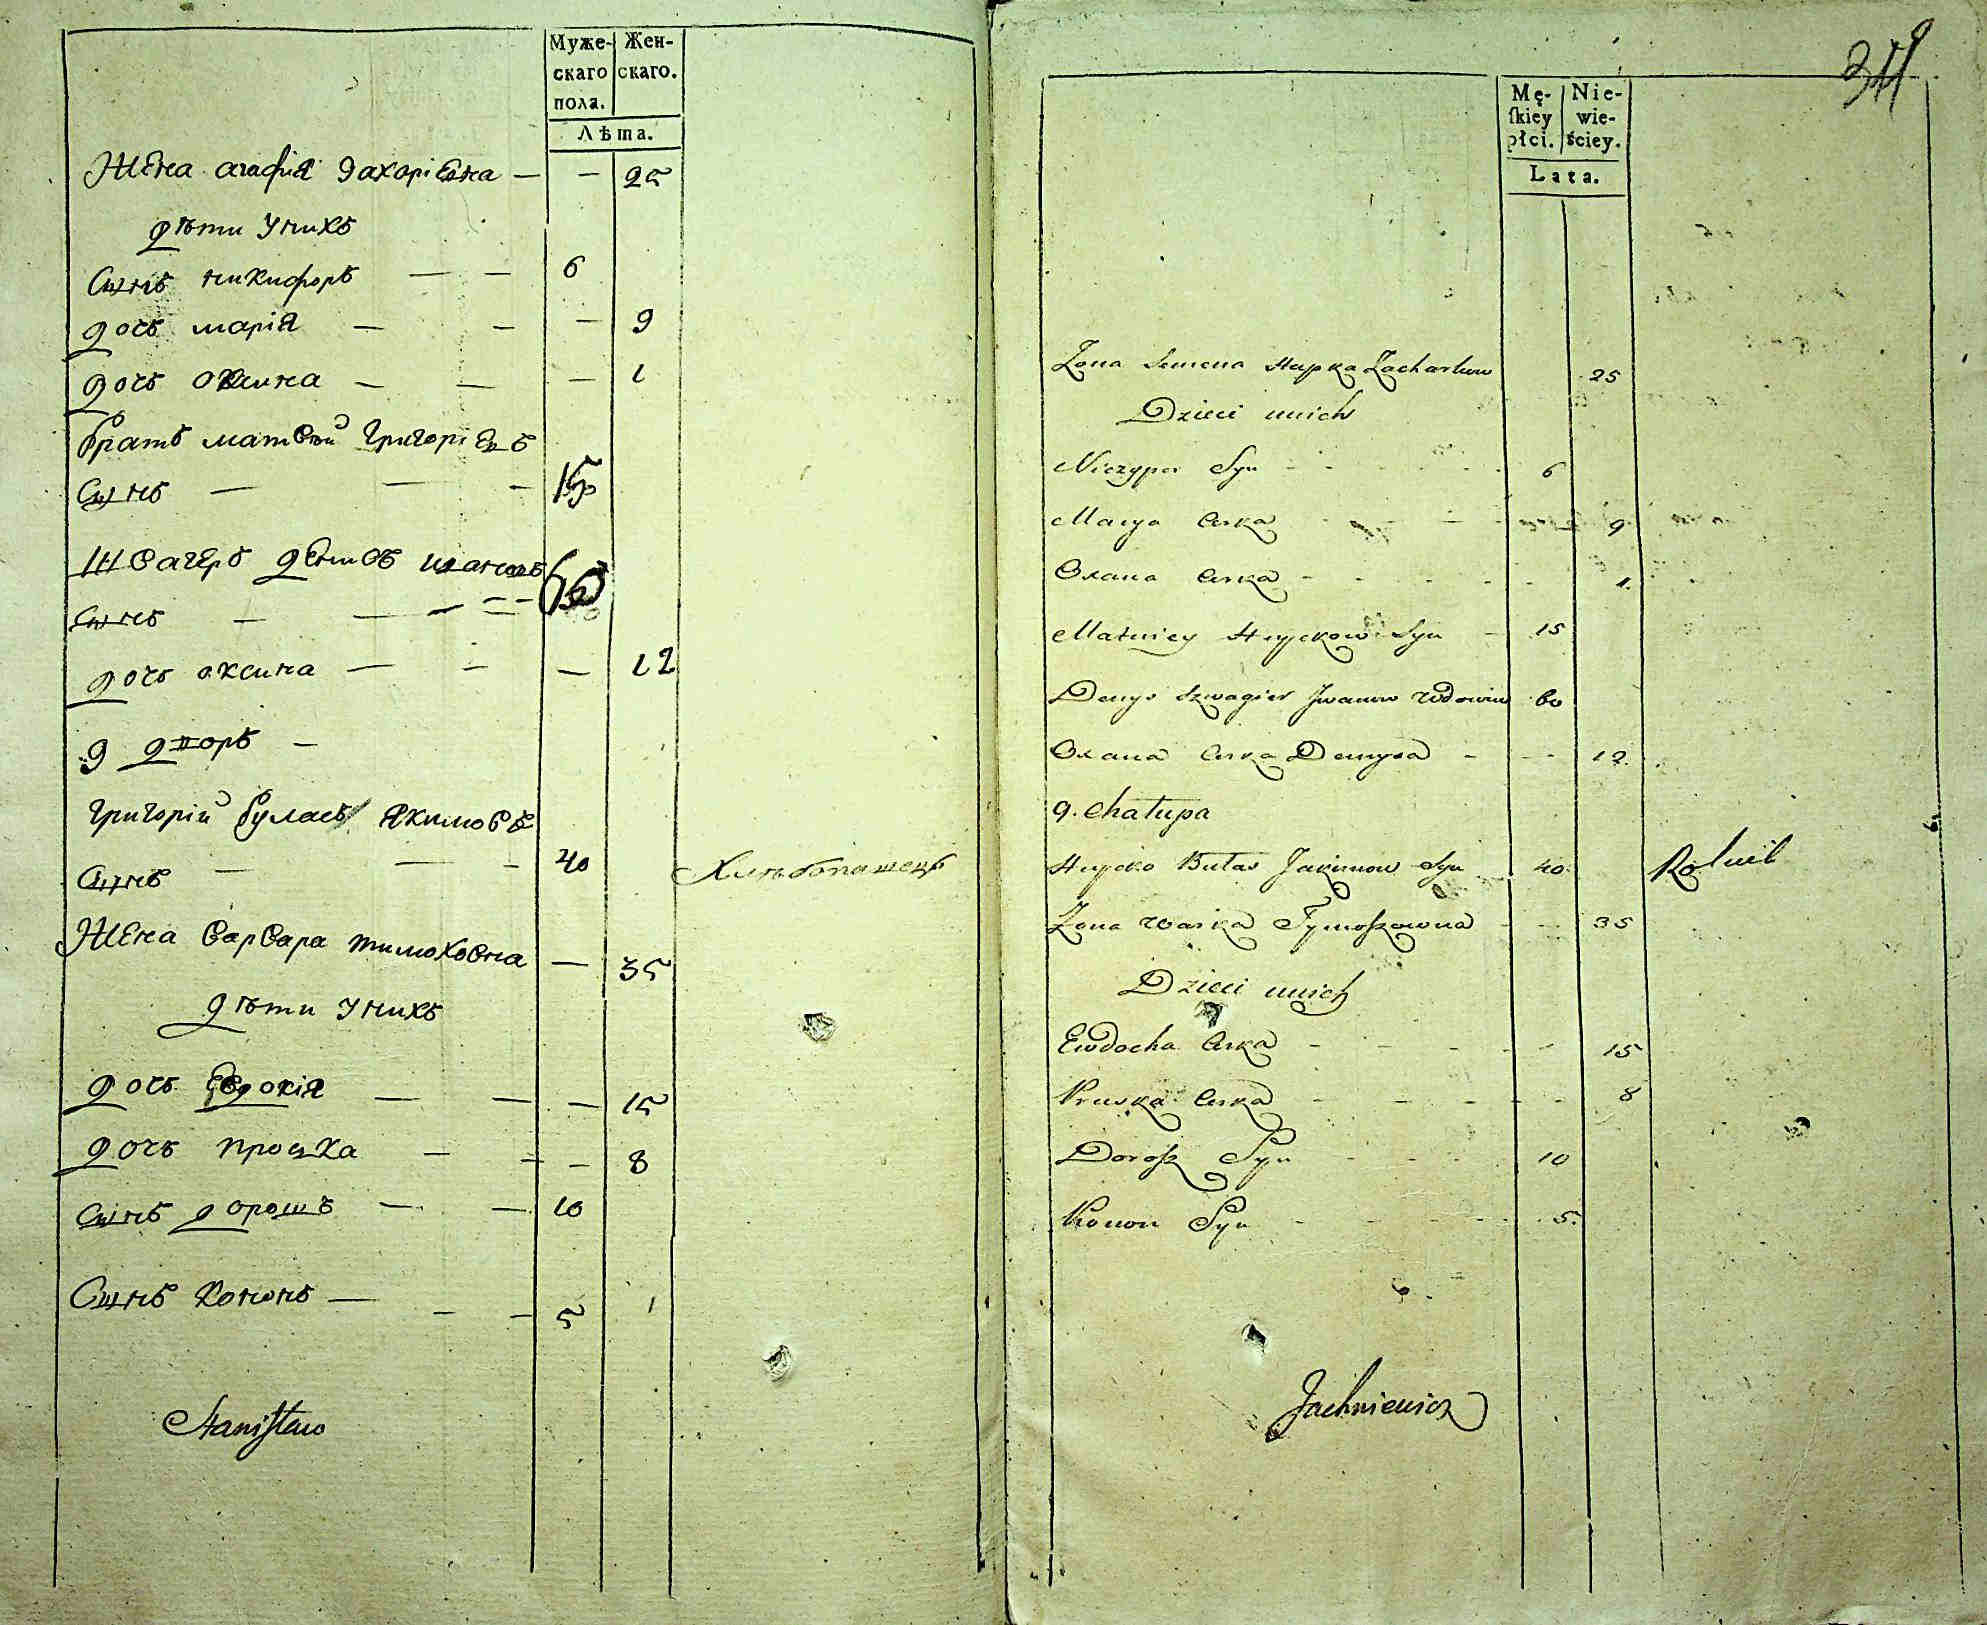 Муже- Жен-
скаго скаго.
пола.
Лѣта.
Жена агафия Захоріевна — — 25
дѣти Унихъ
Сынъ никифоръ — — 6
дочъ марія — — — 9
дочъ оксина — — — 1
братъ матвей Григоріевъ
Сынъ — — — 15
Швагеръ денисъ ивановъ
Сынъ — — — 60
дочъ оксина — — — 12
9 дворъ —
григорій буласъ Якимовъ
Сынъ — — — 40 Хлѣбопашецъ
Жена варвара тимоховна — 35
дѣти Унихъ
дочъ Евдокія — — — 15
дочъ проска — — — 8
Сынъ дорошъ — — 10
Сынъ кононъ — — — 5
Stanisław
311
9
Mę- Nie-
skiey wie-
płci. ściey.
Lata.
Zona Semena Hapka Zacharkow 25
Dzieci unich
Niczypor Syn - - - - 6
Marya Curka - - - 9
Oxana Curka - - - - 1.
Matwiey Hryckow Syn - 15
Denys Szwagier Jwanow wdowiec 60
Oxana Curka Denysa - - - 12.
9. Chałupa
Hrycko Bułas Jakimow Syn - 40. Rolnik
Zona Warka Tymoszowna - - 35
Dzieci unich
Ewdocha Curka - - - - - 15
Pruska Curka - - - - - 8
Dorosz Syn - - - - 10
Konon Syn - - - - - 5.
Jachniewicz